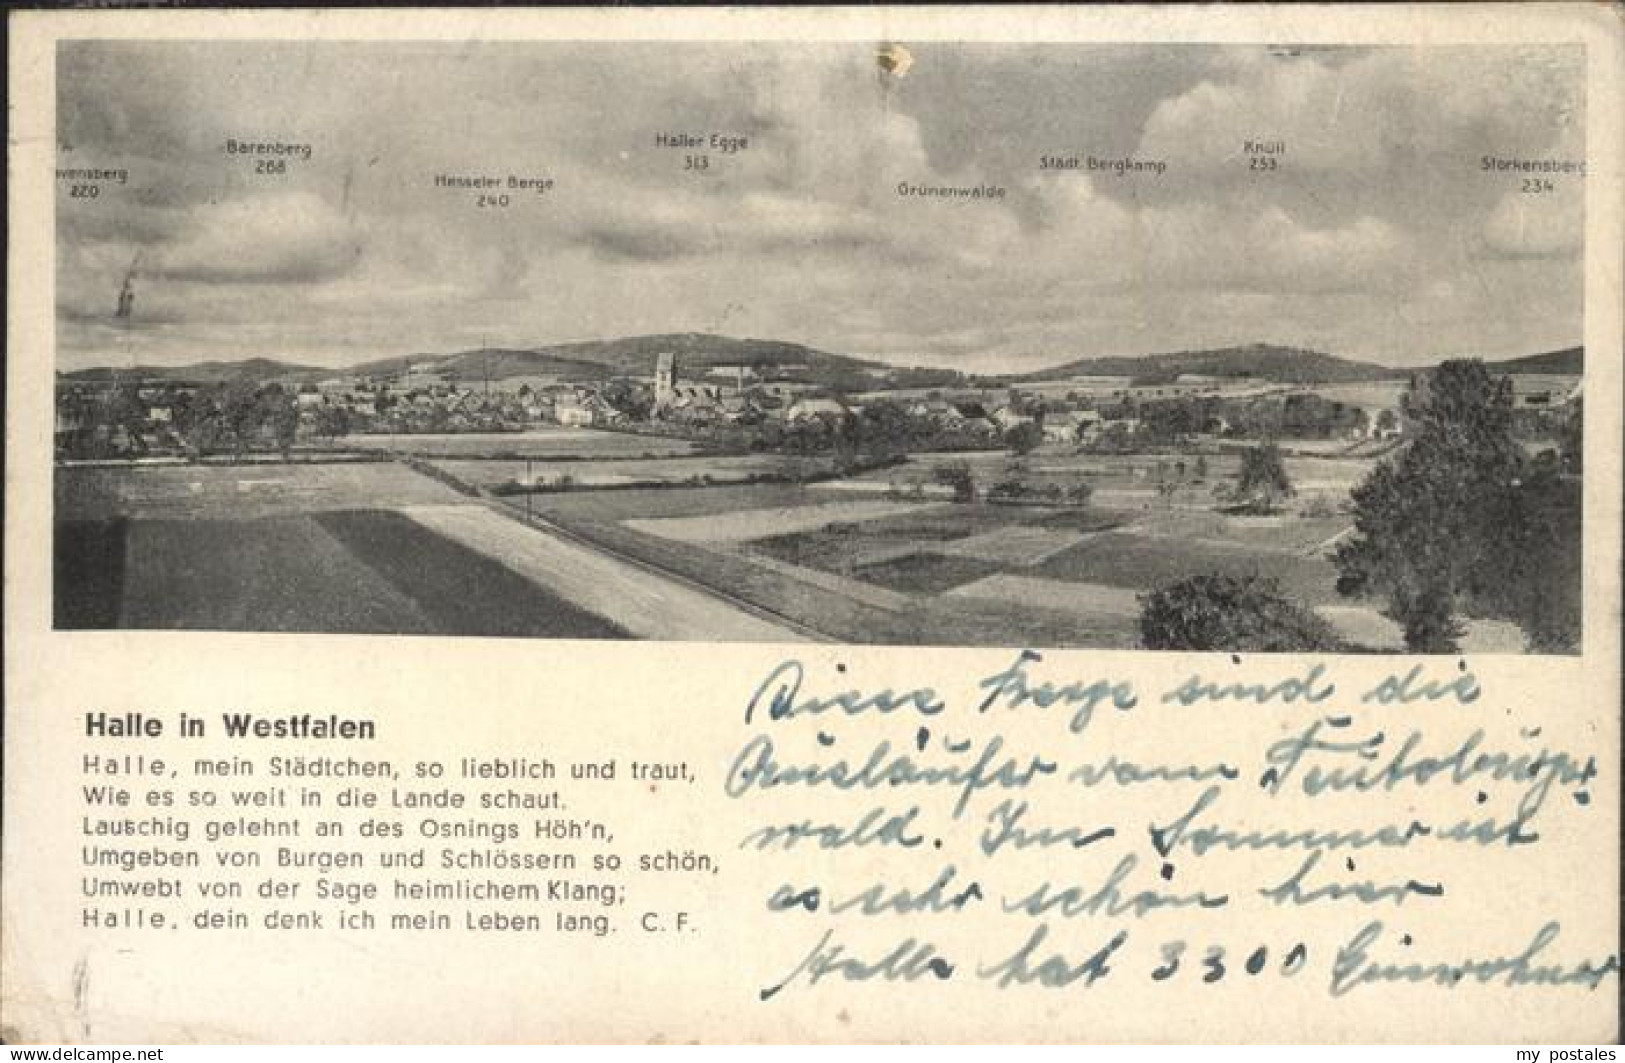 Barenberg
268
Haller Egge
313
Knüll
253
Städt. Bergkamp
Storkensberg
234
vensberg
220
Hesseler Berge
240
Grünenwalde
Halle in Westfalen
Halle, mein Städtchen, so lieblich und traut,
Wie es so weit in die Lande schaut.
Lauschig gelehnt an des Osnings Höh'n,
Umgeben von Burgen und Schlössern so schön,
Umwebt von der Sage heimlichem Klang;
Halle, dein denk ich mein Leben lang. C. F.
Diese Berge sind die
Ausläufer vom Teutoburger
wald. Im Sommer ist
es sehr schön hier
Halle hat 3300 Einwohner
www.delcampe.net
my_postales